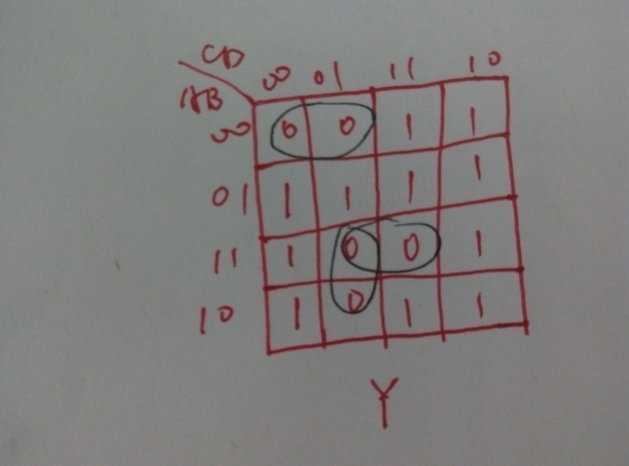 CD
AB
00 01 11 10
00 0 0 1 1
01 1 1 1 1
11 1 0 0 1
10 1 0 1 1
Y